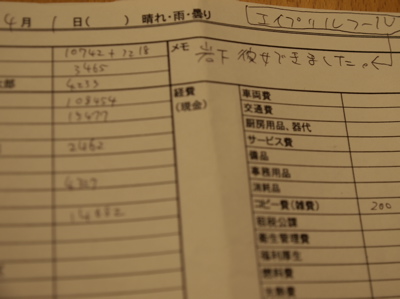 4月 1日( ) 晴れ・雨・曇り
エイプリルフール
10742+1218
メモ 岩下 彼女できました。
3465
4233
108454
経費
(現金)
車両費
13477
交通費
厨房用品、器代
2462
サービス費
備品
事務用品
消耗品
コピー費(雑費) 200
租税公課
衛生管理費
福利厚生
燃料費